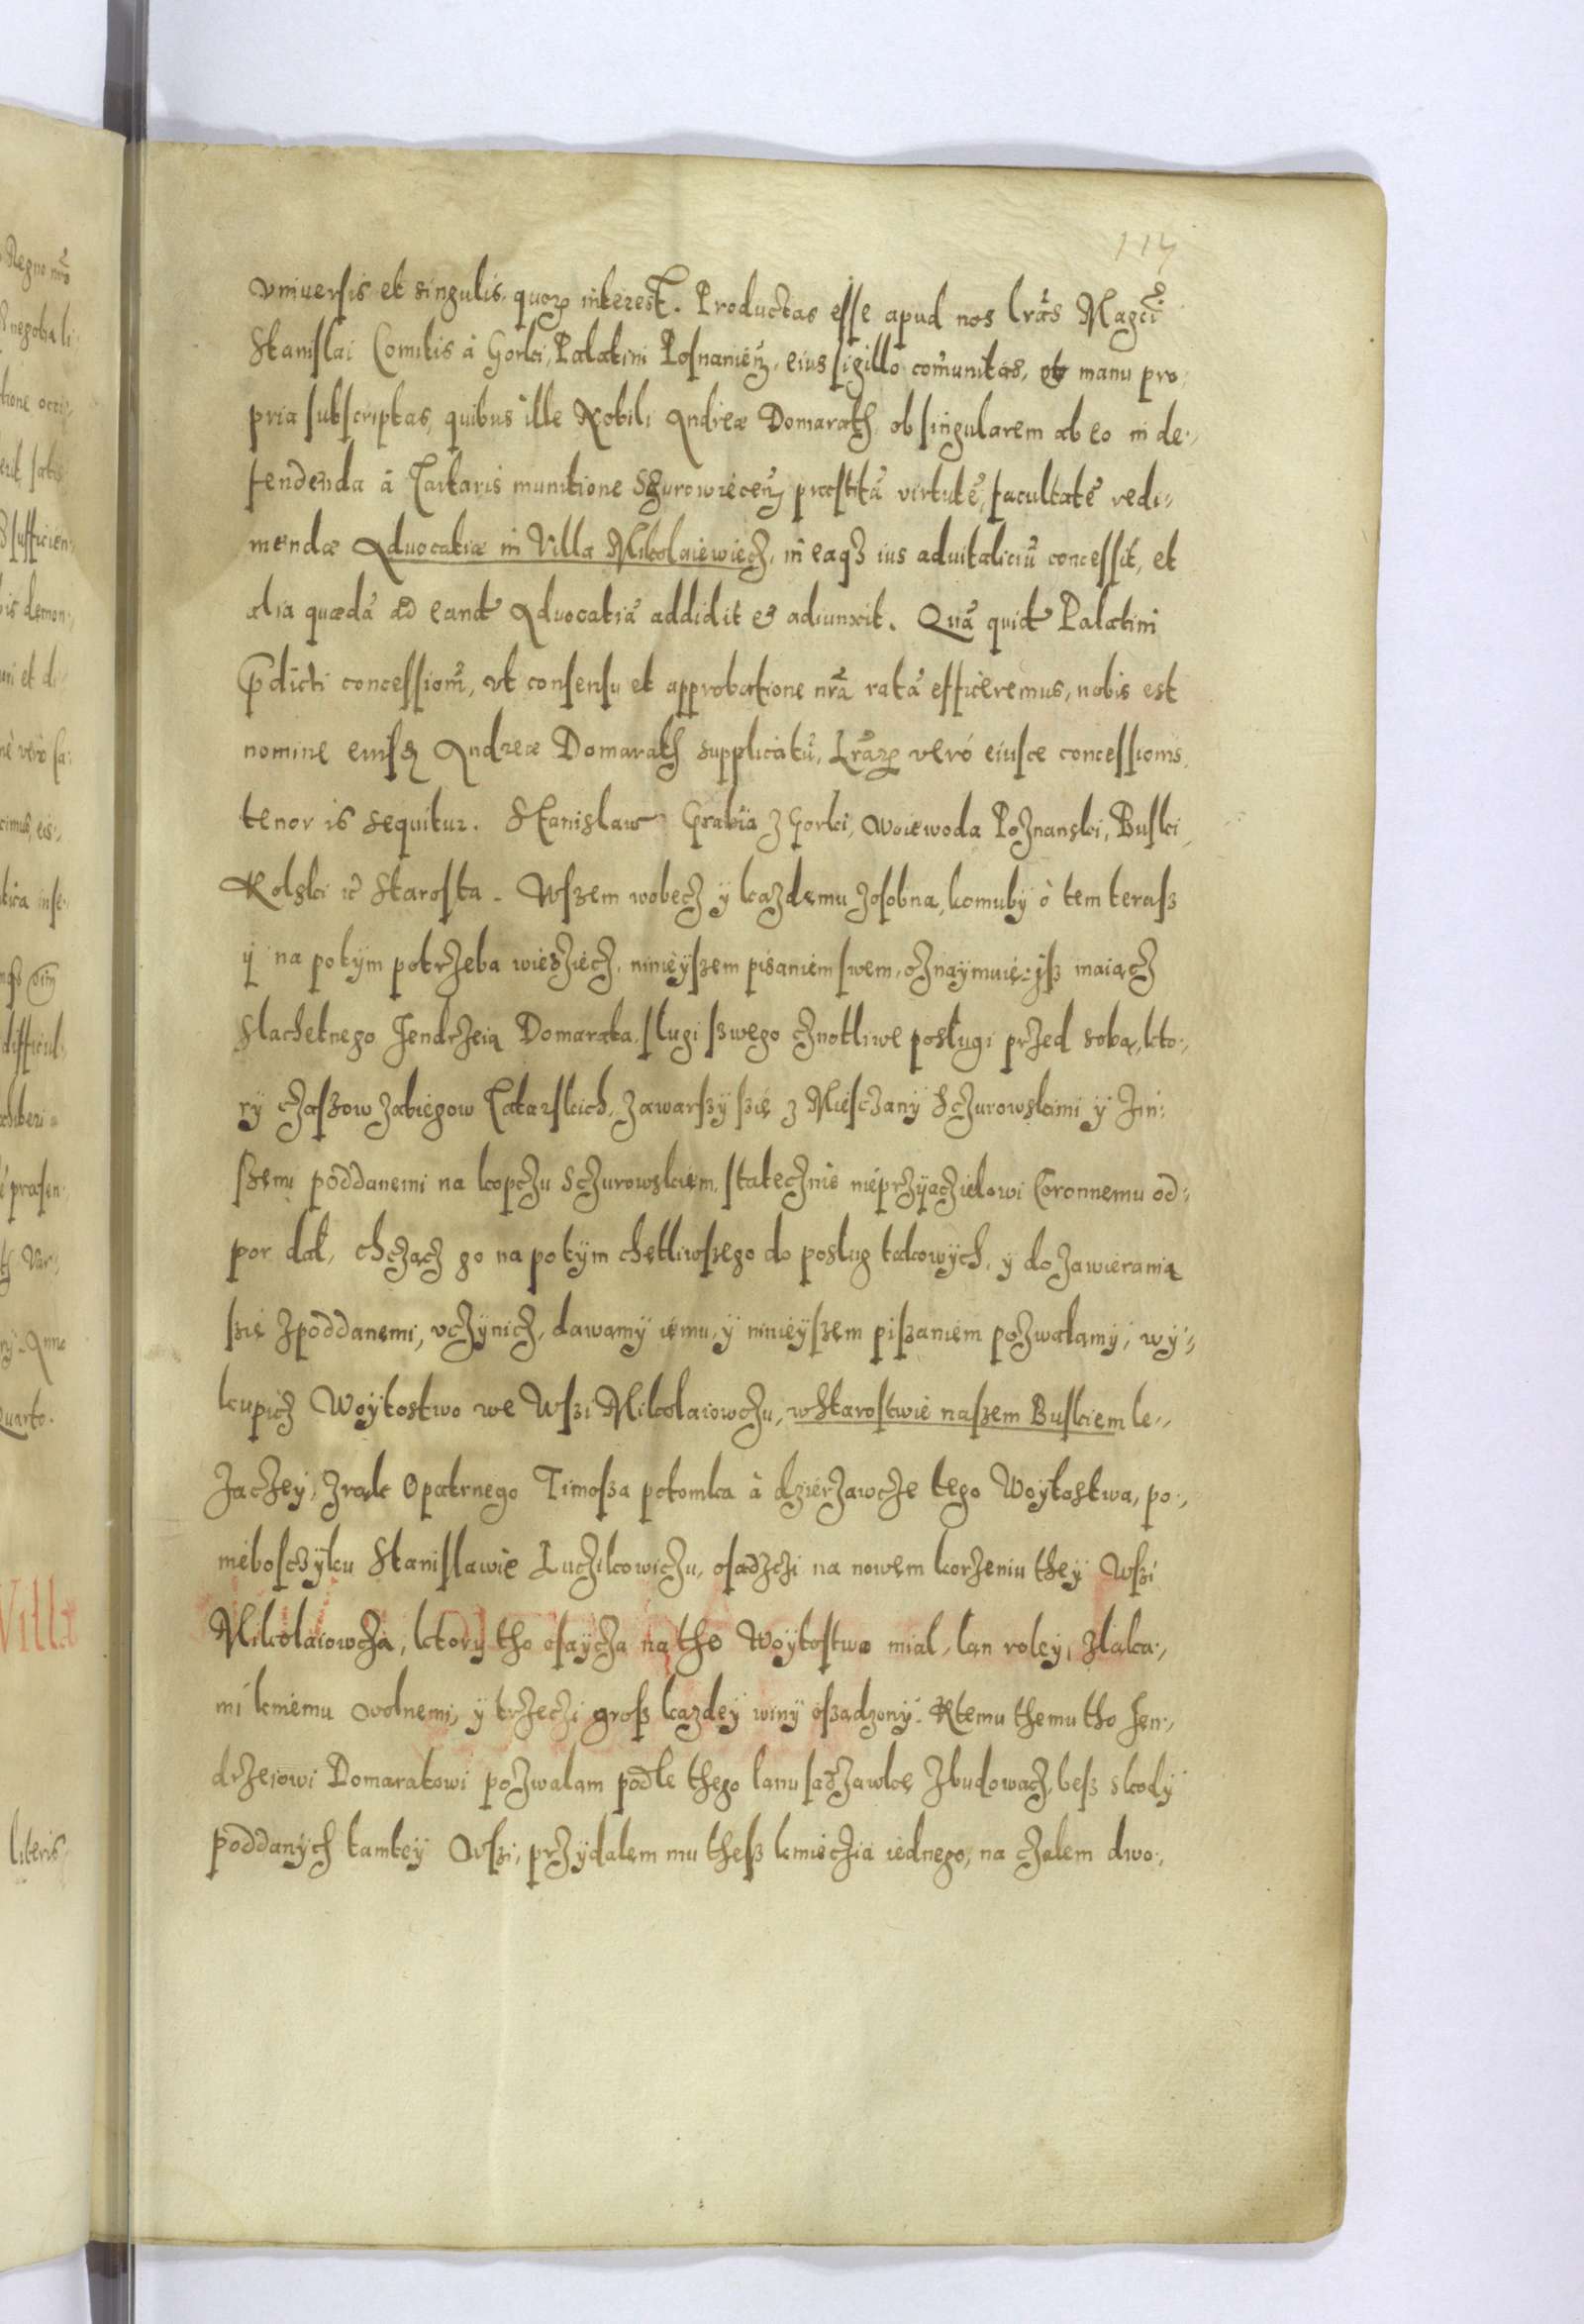 117
vniuersis et singulis, quorꝫ interest. Productas esse apud nos lrãs Magci
Stanislai Comitis à Gorki, Palatini Posnanieñ, eius sigillo com̃unitas, et manu pro:
pria subscriptas, quibus ille Nobili Andreæ Domarath, ob singularem ab eo in de:,
fendenda à Tartaris munitione Sczurowieceñ præstitã virtutẽ, facultatẽ redi,,
mendæ Aduocatiæ in Villa Mikolaiewiecz, in eaqꝫ ius aduitaliciũ concessit, et
alia quædã ad eand̃ Aduocatiã addidit et adiunxit. Quã quid̃ Palatini
p̃dicti concessiom̃, vt consensu et approbatione nrã ratã efficeremus, nobis est
nomine eiusd Andreæ Domarath supplicatũ, Lrãrꝫ veró eiusce concessionis,
tenor is sequitur. Stanislaw Grabia z Gorki, Woiewoda Poznanski, Buski,
Kolski ic̃ Starosta. Wszem wobecz ÿ kazdemu zosobna, komubÿ ò tem terasz
ÿ na potÿm potrzeba wiedziecz, ninieÿszem pisaniem swem, oznaÿmuię: jsz maiącz
slachetnego Jendrzeia Domarata, slugi szwego cznotliwe poslugi przed sobą, kto:,
rÿ czaszow zabiegow Tatarskich, zawarszÿ szię z Miesczanÿ Sczurowskimi ÿ Jn:
szemi poddanemi na kopczu Sczurowskiem, statecznie nieprzÿaczielowi Coronnemu od:
por dał, chczącz go na potÿm chetliwszego do poslug takowÿch, ÿ do zawierania
szie zpoddanemi, vczÿnicz, dawamÿ iemu, ÿ ninieÿszem piszaniem pozwalamÿ, wÿ:,
kupicz Woÿtostwo we Wszi Mikolaiowczu, wStarostwie naszem Buskiem le,,
zaczeÿ, zrąk Opatrnego Timosza potomka à dzierzawcze tego Woÿtostwa, po:,
nieboszczÿku Stanislawie Luczikowiczu, osadzczi na nowem korzeniu theÿ Wszi
Mikolaiowcza, ktorÿ tho osaÿcza na tho Woÿtostwo mial, lan roleÿ, złąka:,
mi kniemu Wolnemi, ÿ trzeczi grosz kazdeÿ winÿ oszadzonÿ. Ktemu themu tho Jen:,
drzeiowi Domaratowi pozwalam podle thego lanu sadzawkę zbudowacz, besz skodÿ
poddanÿch tamteÿ Wszi, przÿdalem mu thesz kmieczia iednego, na czalem dwo:,